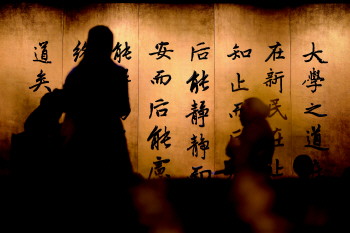 大學之道
在新民在
知止而
后能靜靜
安而后能慮
能
終
道矣